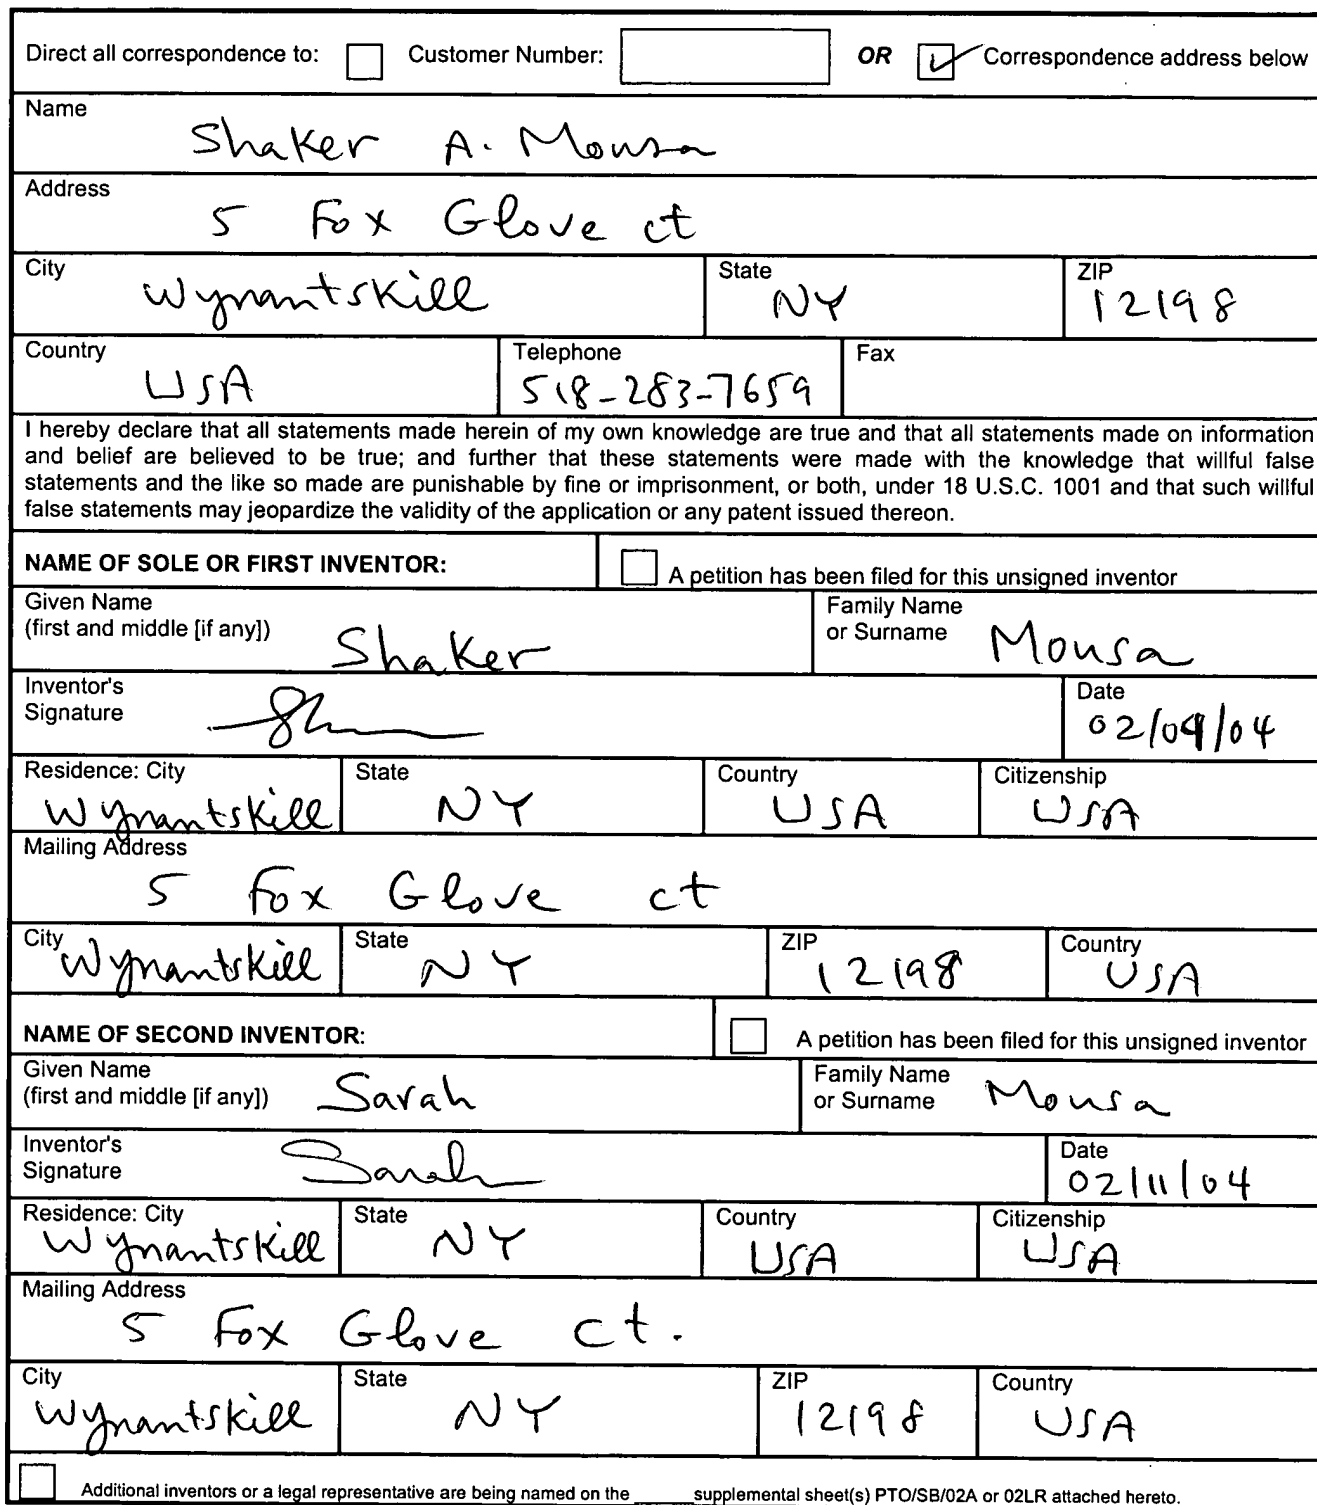 Direct all correspondence to: Customer Number: OR Correspondence address below
Name
Shaker A. Mousa
Address
5 Fox Glove ct
City State ZIP
Wynantskill NY 12198
Country Telephone Fax
USA 518-283-7659
I hereby declare that all statements made herein of my own knowledge are true and that all statements made on information
and belief are believed to be true; and further that these statements were made with the knowledge that willful false
statements and the like so made are punishable by fine or imprisonment, or both, under 18 U.S.C. 1001 and that such willful
false statements may jeopardize the validity of the application or any patent issued thereon.
NAME OF SOLE OR FIRST INVENTOR: A petition has been filed for this unsigned inventor
Given Name Family Name
(first and middle [if any]) Shaker or Surname Mousa
Inventor's Date
Signature 02/09/04
Residence: City State Country Citizenship
Wynantskill NY USA USA
Mailing Address
5 Fox Glove ct
City State ZIP Country
Wynantskill NY 12198 USA
NAME OF SECOND INVENTOR: A petition has been filed for this unsigned inventor
Given Name Family Name
(first and middle [if any]) Sarah or Surname Mousa
Inventor's Date
Signature Sarah 02/11/04
Residence: City State Country Citizenship
Wynantskill NY USA USA
Mailing Address
5 Fox Glove ct.
City State ZIP Country
Wynantskill NY 12198 USA
Additional inventors or a legal representative are being named on the _____supplemental sheet(s) PTO/SB/02A or 02LR attached hereto.